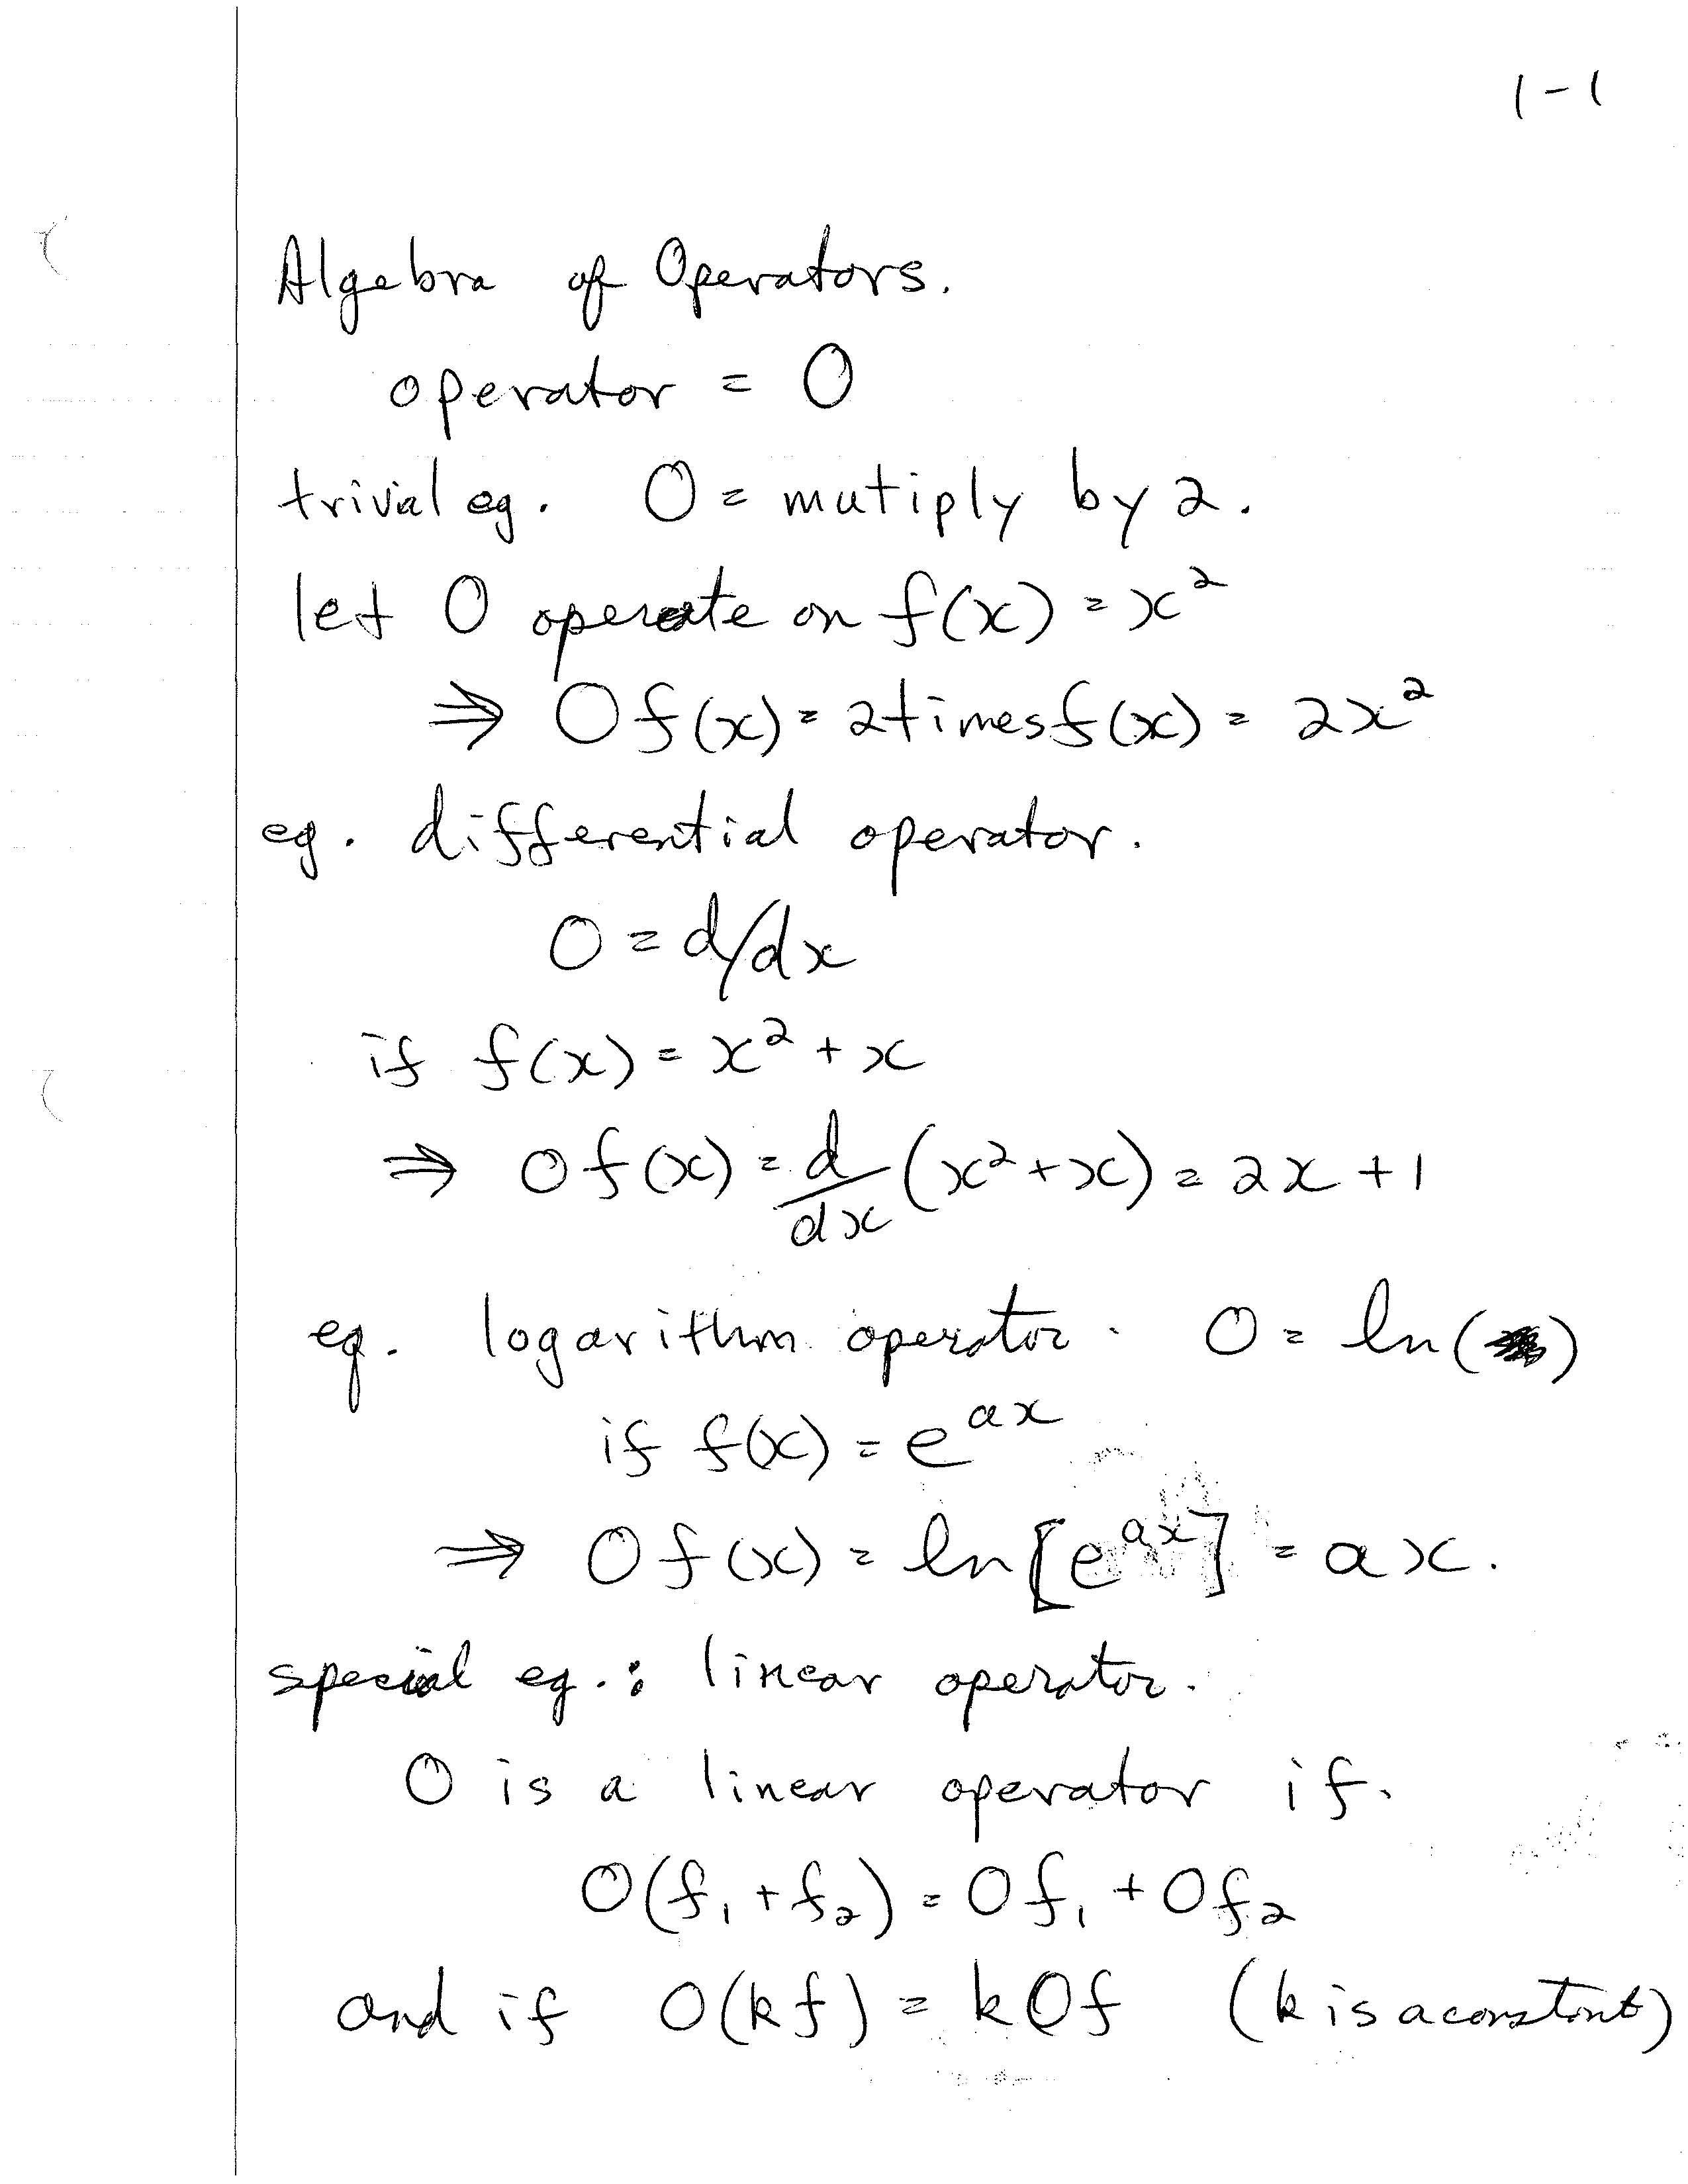 1-1
Algebra of Operators.
operator = O
trivial eg. O = mutiply by 2.
let O operate on f(x) = x²
⇒ O f(x) = 2 times f(x) = 2x²
eg. differential operator.
O = d/dx
if f(x) = x² + x
⇒ O f(x) = d/dx (x² + x) = 2x + 1
eg. logarithm operator. O = ln( )
if f(x) = e^{ax}
⇒ O f(x) = ln[e^{ax}] = ax.
special eg.: linear operator.
O is a linear operator if.
O(f₁ + f₂) = Of₁ + Of₂
and if O(kf) = kOf (k is a constant)